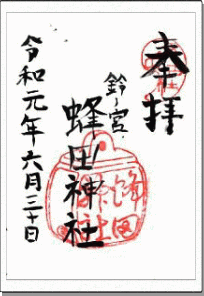 奉拝
鈴の宮
蜂田神社
令和元年六月三十日